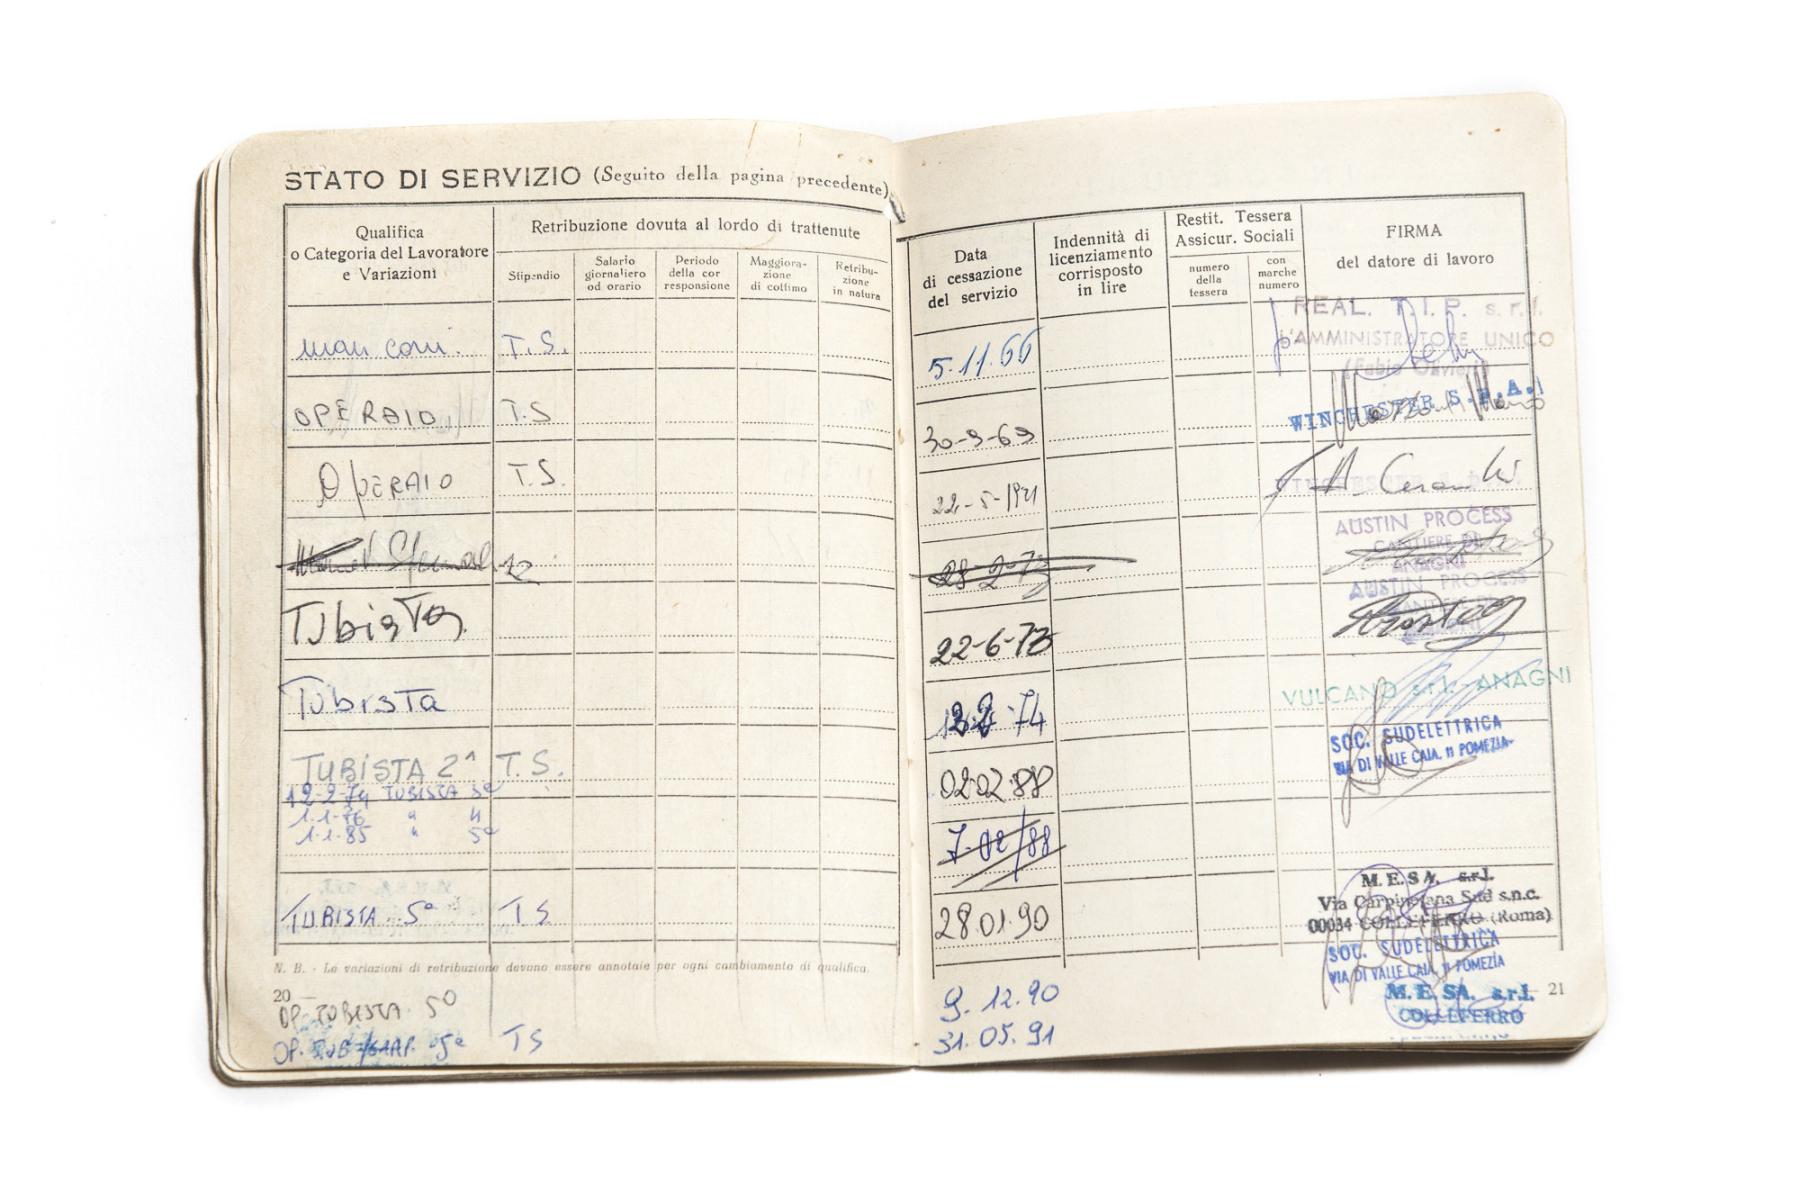 STATO DI SERVIZIO (Seguito della pagina precedente)
Qualifica
o Categoria del Lavoratore
e Variazioni
Retribuzione dovuta al lordo di trattenute
Stipendio
Salario
giornaliero
od orario
Periodo
della cor
responsione
Maggiora-
zione
di cottimo
Retribu-
zione
in natura
man com. T.S.
OPERAIO T.S
OPERAIO T.S.
12
Tubista
Tubista
TUBISTA 2ª T.S.
12-2-74 TUBISTA 3ª
1.1-76 " 4
1.1.85 " 5ª
TUBISTA 5ª TS
N. B. - Le variazioni di retribuzione devono essere annotate per ogni cambiamento di qualifica.
20
OP. TUBISTA 5º
OP. TUB 5ª TS
Data
di cessazione
del servizio
Indennità di
licenziamento
corrisposto
in lire
Restit. Tessera
Assicur. Sociali
numero
della
tessera
con
marche
numero
FIRMA
del datore di lavoro
5.11.66
REAL. T.I.P. s.r.l.
L'AMMINISTRATORE UNICO
30-9-69
WINCHESTER S.P.A.
22-5-1971
28-2-73
AUSTIN PROCESS
CANTIERE DI
ANAGNI
22-6-73
AUSTIN PROCESS
CANTIERE DI
74
VULCANO s.r.l. ANAGNI
02.02.88
SOC. SUDELETTRICA
VIA DI VALLE CAIA, 11 POMEZIA
7-02/88
28.01.90
M.E.SA. s.r.l.
Via Carpinetana Sud s.n.c.
00034 COLLEFERRO (Roma)
SOC. SUDELETTRICA
VIA DI VALLE CAIA, 11 POMEZIA
9.12.90
M.E.SA. s.r.l.
COLLEFERRO
21
31.05.91